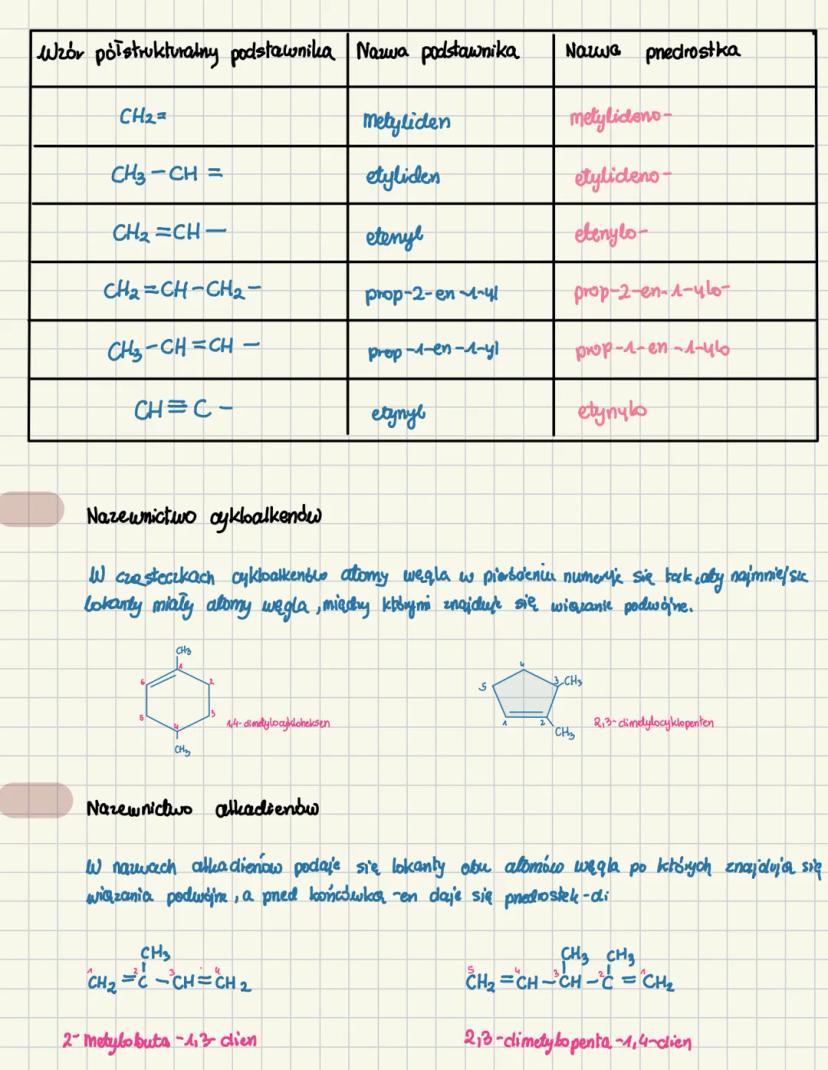 Wzór półstrukturalny podstawnika Nazwa podstawnika Nazwa pnedrostka
CH2= metyliden metylideno-
CH3-CH= etyliden etylideno-
CH2=CH- etenyl etenylo-
CH2=CH-CH2- prop-2-en-1-yl prop-2-en-1-ylo-
CH3-CH=CH- prop-1-en-1-yl prop-1-en-1-ylo
CH≡C- etynyl etynylo
Nazewnictwo cykloalkenów
W cząsteczkach cykloalkenów atomy węgla w pierścieniu numeruje się tak, aby najmniejsze
lokanty miały atomy węgla, między którymi znajduje się wiązanie podwójne.
CH3
1
6 2
5 3
4
CH3
1,4-dimetylocykloheksen
4
5 3 CH3
1 2
CH3
2,3-dimetylocyklopenten
Nazewnictwo alkadienów
W nazwach alkadienów podaje się lokanty obu atomów węgla po których znajdują się
wiązania podwójne, a pned końcówką -en daje się pnedrostek -di
CH3
1 2 3 4
CH2=C-CH=CH2
2-metylobuta-1,3-dien
CH3 CH3
5 4 3 2 1
CH2=CH-CH-C=CH2
2,3-dimetylopenta-1,4-dien